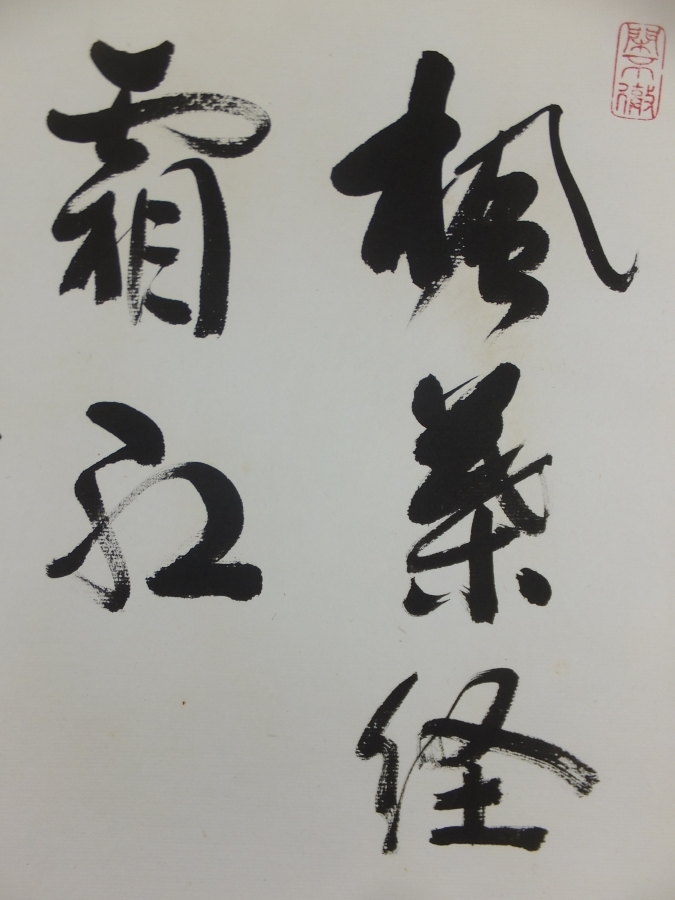 閑不徹
楓葉経
霜紅